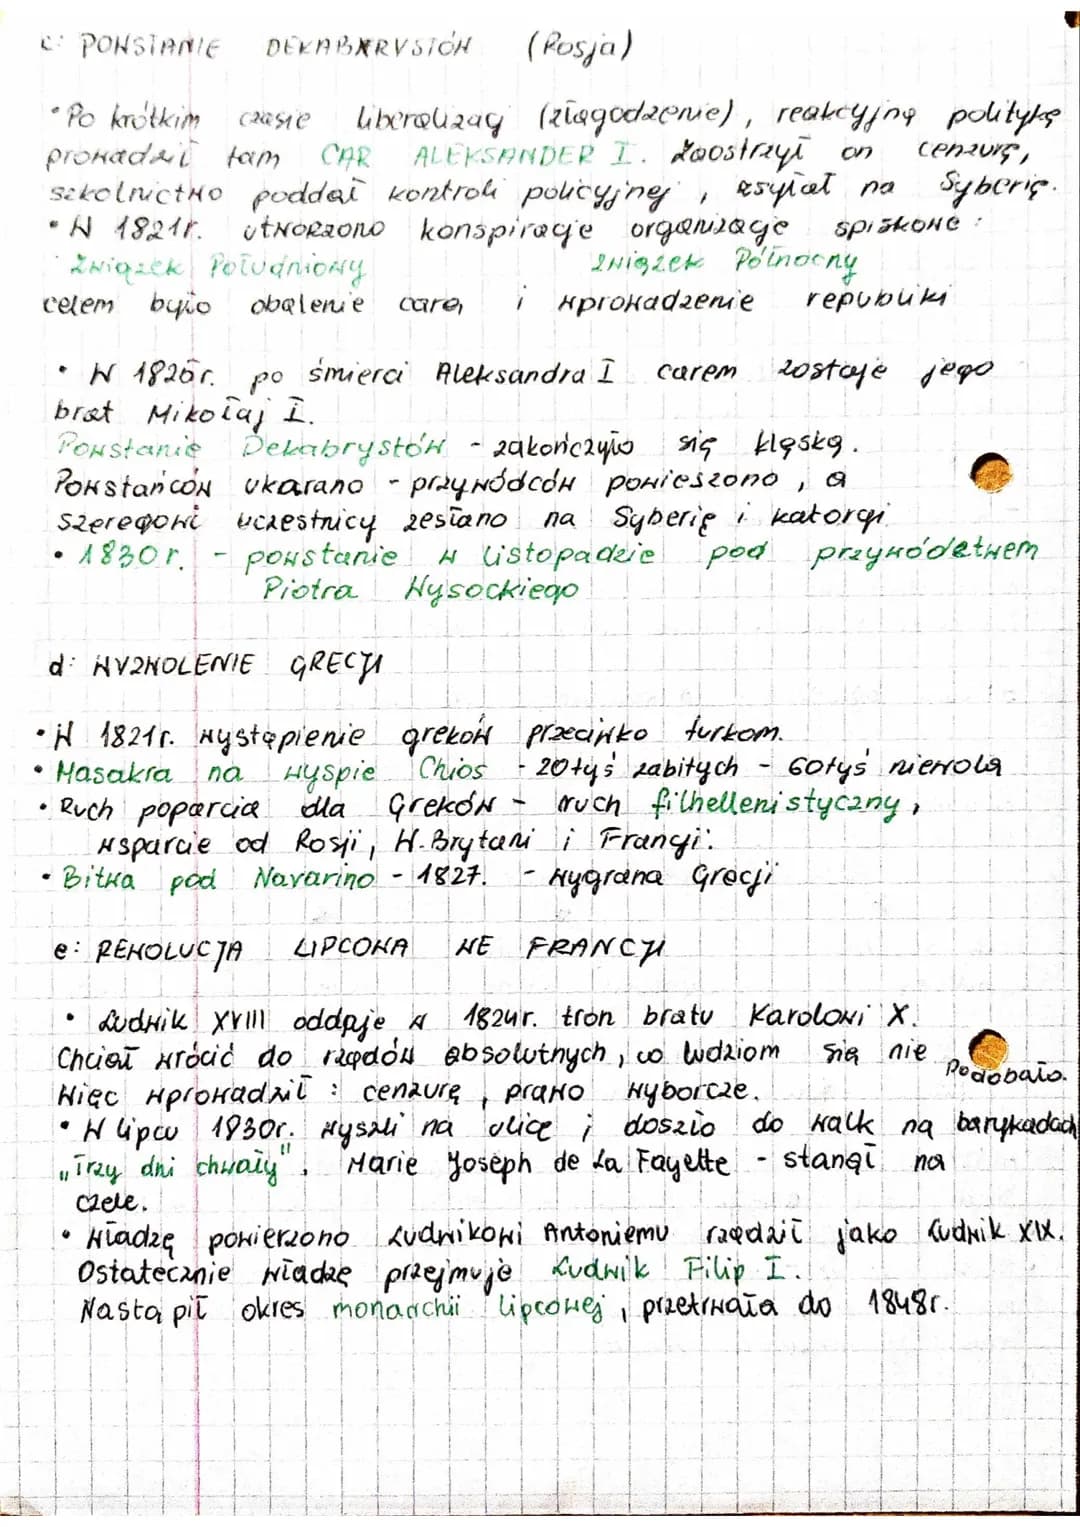 c: POWSTANIE DEKABRYSTÓW (Rosja)
• Po krótkim czasie liberalizacji (złagodzenie), reakcyjną politykę
prowadził tam CAR ALEKSANDER I. Zaostrzył on cenzurę,
szkolnictwo poddał kontroli policyjnej, zsyłał na Syberię.
• W 1821r. utworzono konspiracje organizacje spiskowe:
Związek Południowy Związek Północny
celem było obalenie cara i wprowadzenie republiki
• W 1825r. po śmierci Aleksandra I carem zostaje jego
brat Mikołaj I.
Powstanie Dekabrystów - zakończyło się klęską.
Powstańców ukarano - przywódców powieszono, a
szeregowi uczestnicy zesłano na Syberię i katorgi
• 1830r. - powstanie w listopadzie pod przywództwem
Piotra Wysockiego
d: WYZWOLENIE GRECJI
• W 1821r. wystąpienie greków przeciwko turkom.
• Masakra na wyspie Chios - 20tyś zabitych - 60tyś niewola
• Ruch poparcia dla Greków - ruch filhellenistyczny,
wsparcie od Rosji, W.Brytani i Francji.
• Bitwa pod Navarino - 1827. - wygrana Grecji
e: REWOLUCJA LIPCOWA WE FRANCJI
• Ludwik XVIII oddaje w 1824r. tron bratu Karolowi X.
Chciał wrócić do rządów absolutnych, co ludziom się nie podobało.
Więc wprowadził: cenzurę, prawo wyborcze.
• W lipcu 1830r. wyszli na ulice i doszło do walk na barykadach
„Trzy dni chwały". Marie Joseph de La Fayette - stanął na
czele.
• Władzę powierzono Ludwikowi Antoniemu rządził jako Ludwik XIX.
Ostatecznie władzę przejmuje Ludwik Filip I.
Nastąpił okres monarchii lipcowej, przetrwała do 1848r.